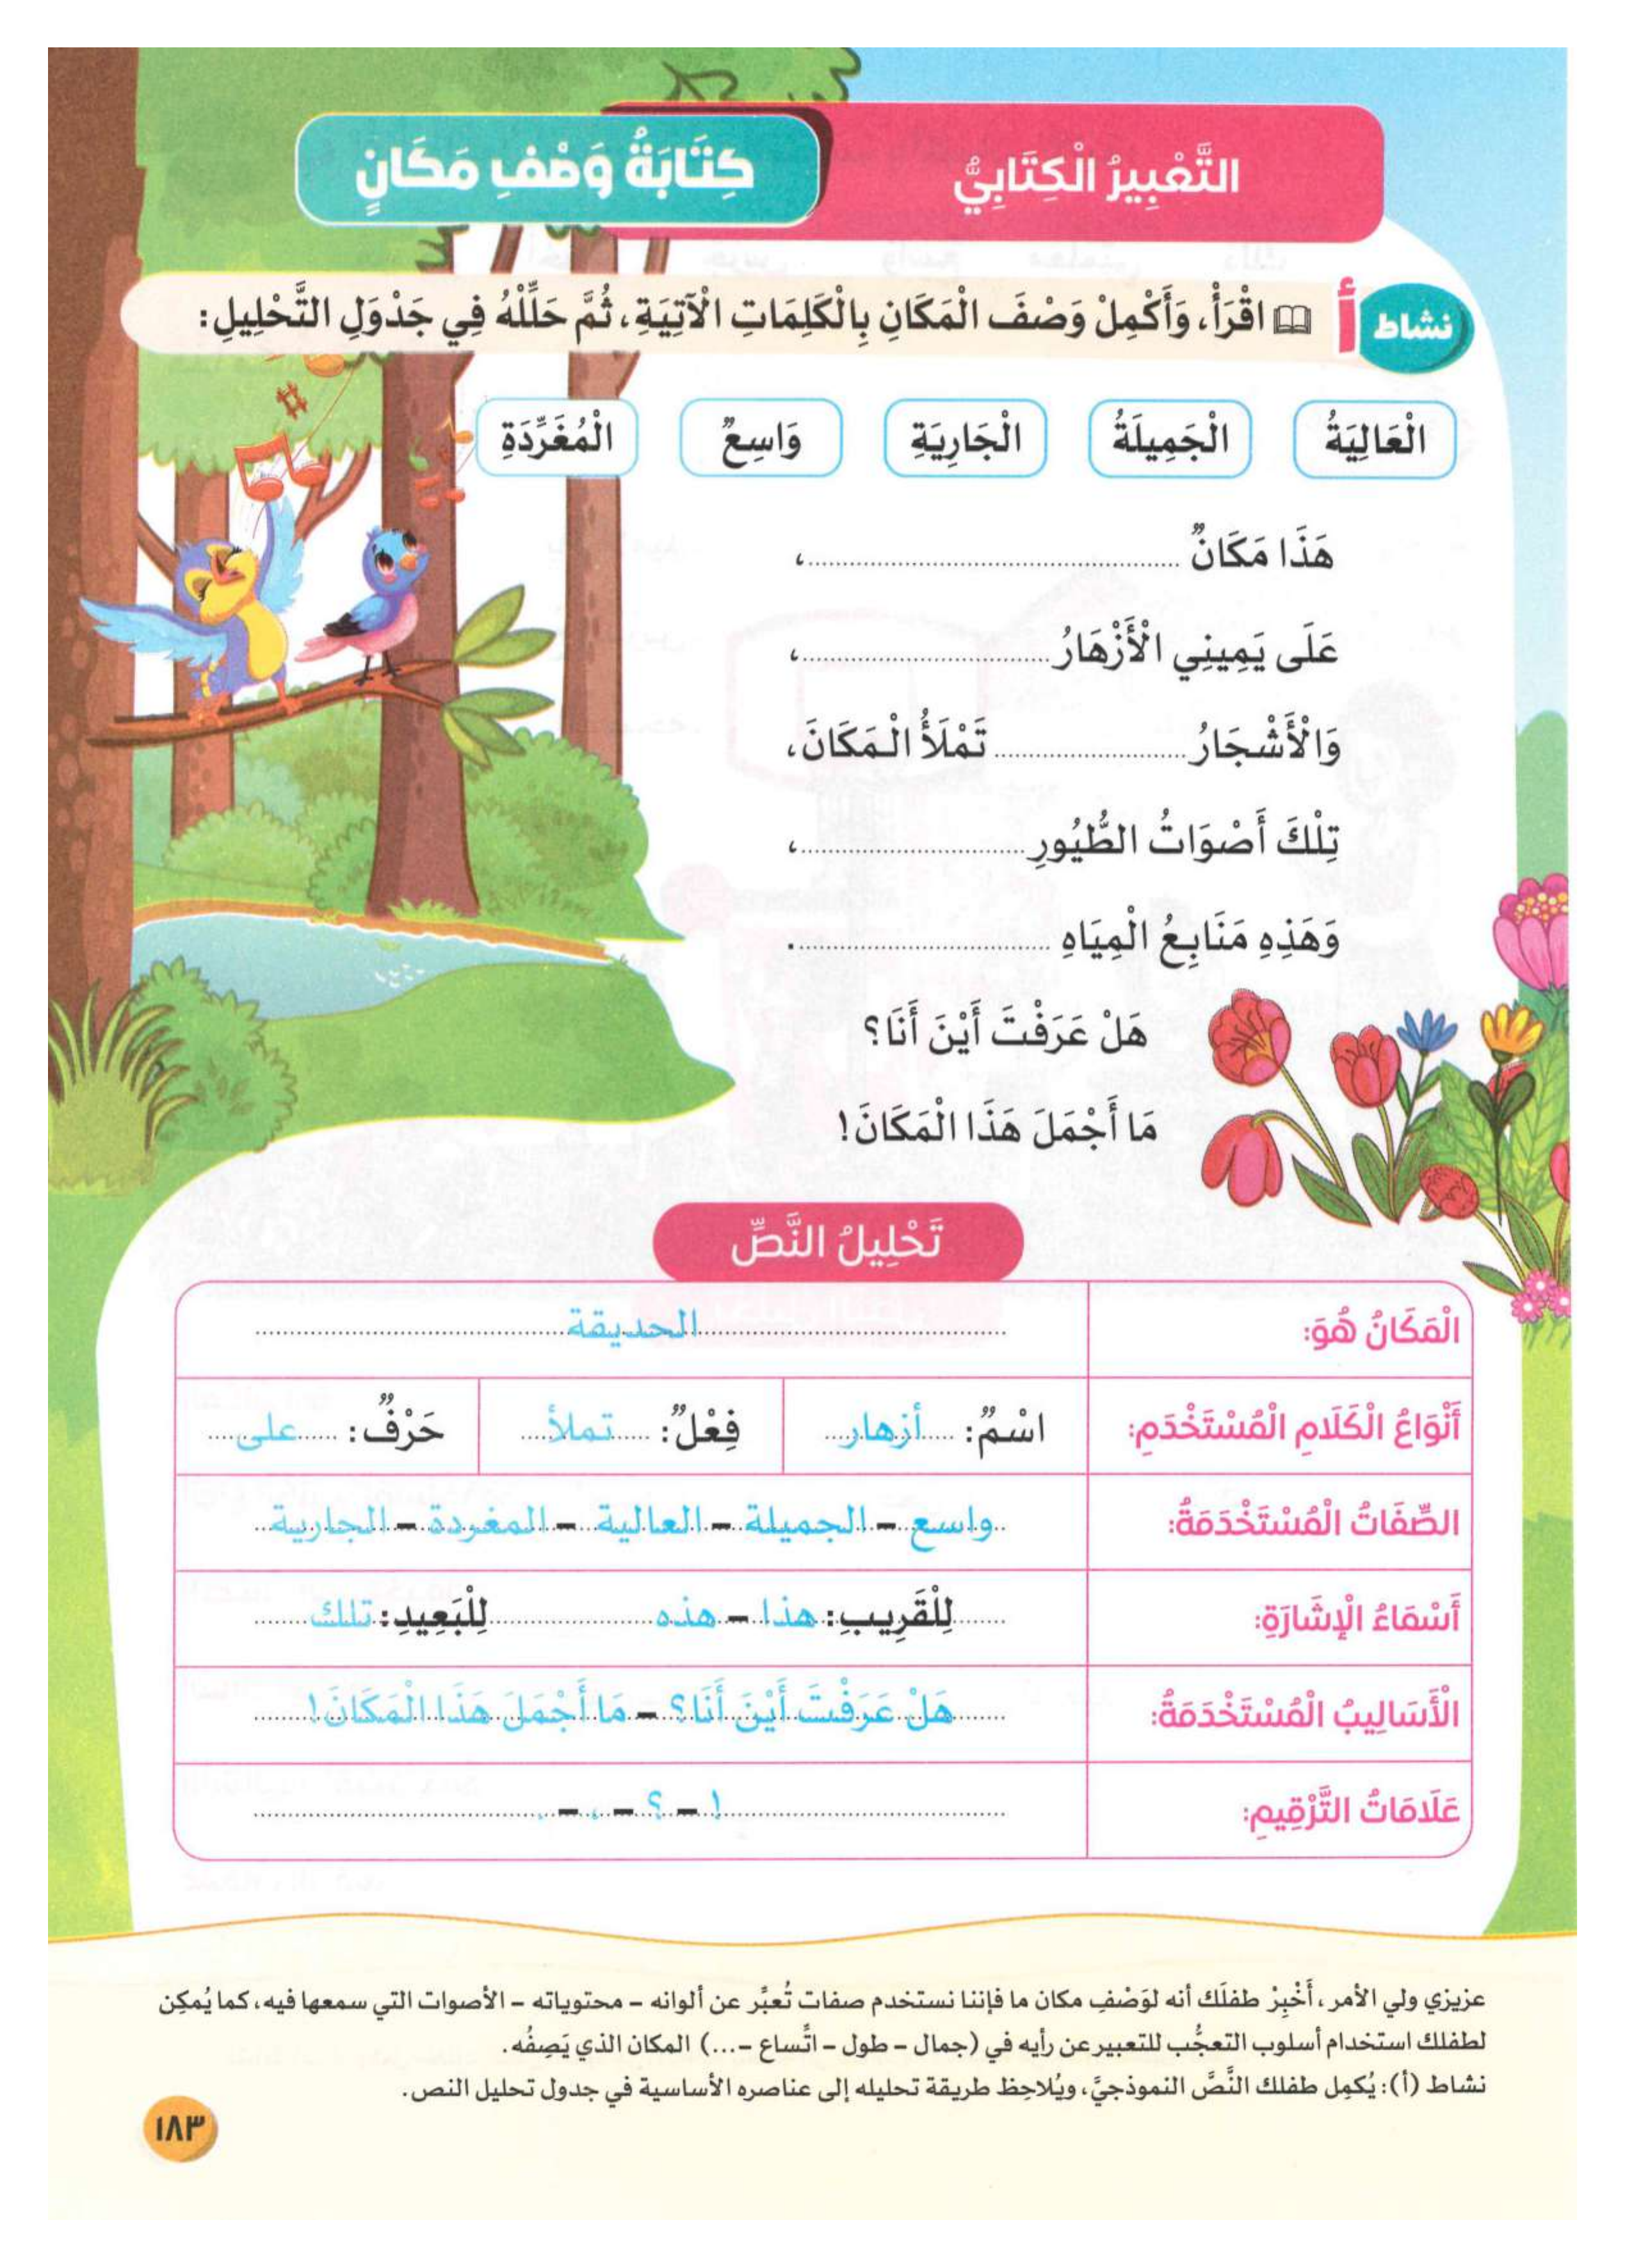 التَّعْبِيرُ الْكِتَابِيُّ
كِتَابَةُ وَصْفِ مَكَانٍ
نشاط أ اقْرَأْ، وَأَكْمِلْ وَصْفَ الْمَكَانِ بِالْكَلِمَاتِ الْآتِيَةِ، ثُمَّ حَلِّلْهُ فِي جَدْوَلِ التَّحْلِيلِ:
الْعَالِيَةُ الْجَمِيلَةُ الْجَارِيَةِ وَاسِعٌ الْمُغَرِّدَةِ
هَذَا مَكَانٌ ..............................،
عَلَى يَمِينِي الْأَزْهَارُ ....................،
وَالْأَشْجَارُ .................... تَمْلَأُ الْمَكَانَ،
تِلْكَ أَصْوَاتُ الطُّيُورِ ....................،
وَهَذِهِ مَنَابِعُ الْمِيَاهِ .....................
هَلْ عَرَفْتَ أَيْنَ أَنَا؟
مَا أَجْمَلَ هَذَا الْمَكَانَ!
تَحْلِيلُ النَّصِّ
الْمَكَانُ هُوَ: الحديقة
أَنْوَاعُ الْكَلَامِ الْمُسْتَخْدَمِ: اسْمٌ: أزهار فِعْلٌ: تملأ حَرْفٌ: على
الصِّفَاتُ الْمُسْتَخْدَمَةُ: واسع – الجميلة – العالية – المغردة – الجارية
أَسْمَاءُ الْإِشَارَةِ: لِلْقَرِيبِ: هذا – هذه لِلْبَعِيدِ: تلك
الْأَسَالِيبُ الْمُسْتَخْدَمَةُ: هَلْ عَرَفْتَ أَيْنَ أَنَا؟ – مَا أَجْمَلَ هَذَا الْمَكَانَ!
عَلَامَاتُ التَّرْقِيمِ: ! – ؟ – ، – .
عزيزي ولي الأمر، أَخْبِرْ طفلَك أنه لوَصْفِ مكان ما فإننا نستخدم صفات تُعبِّر عن ألوانه – محتوياته – الأصوات التي سمعها فيه، كما يُمكِن
لطفلك استخدام أسلوب التعجُّب للتعبير عن رأيه في (جمال – طول – اتِّساع –...) المكان الذي يَصِفُه.
نشاط (أ): يُكمِل طفلك النَّصَّ النموذجيَّ، ويُلاحِظ طريقة تحليله إلى عناصره الأساسية في جدول تحليل النص.
١٨٣